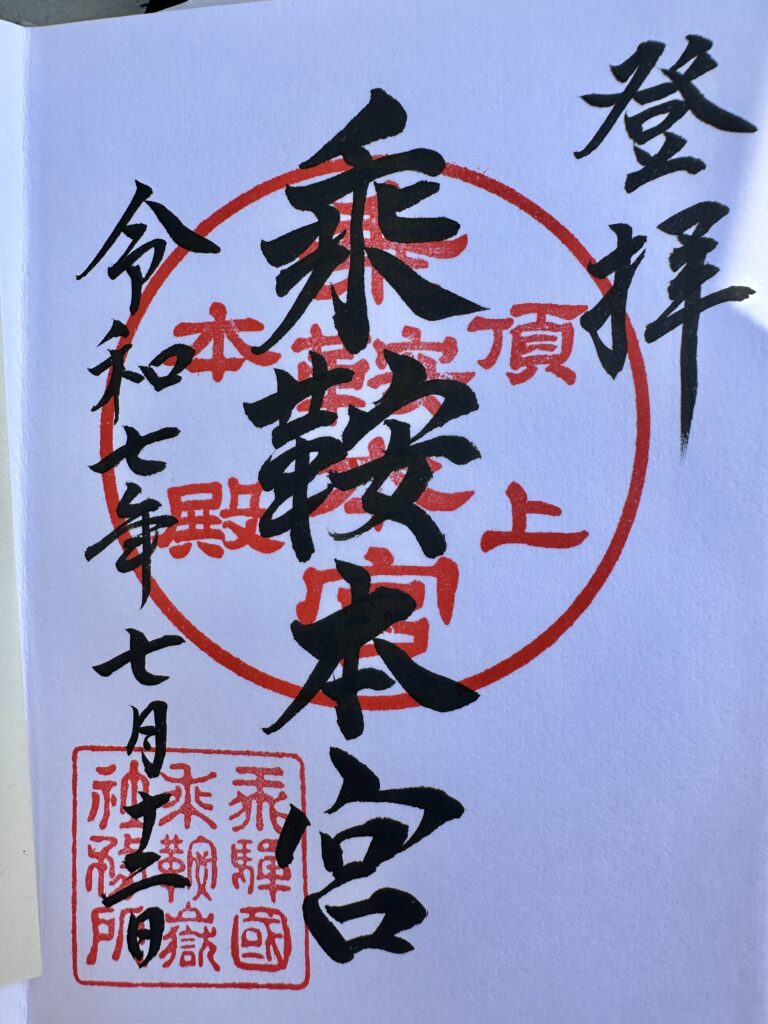 登拝
乗鞍本宮
令和七年七月十二日
頂上
乗鞍本宮
本殿
飛騨國
乗鞍嶽
社務所